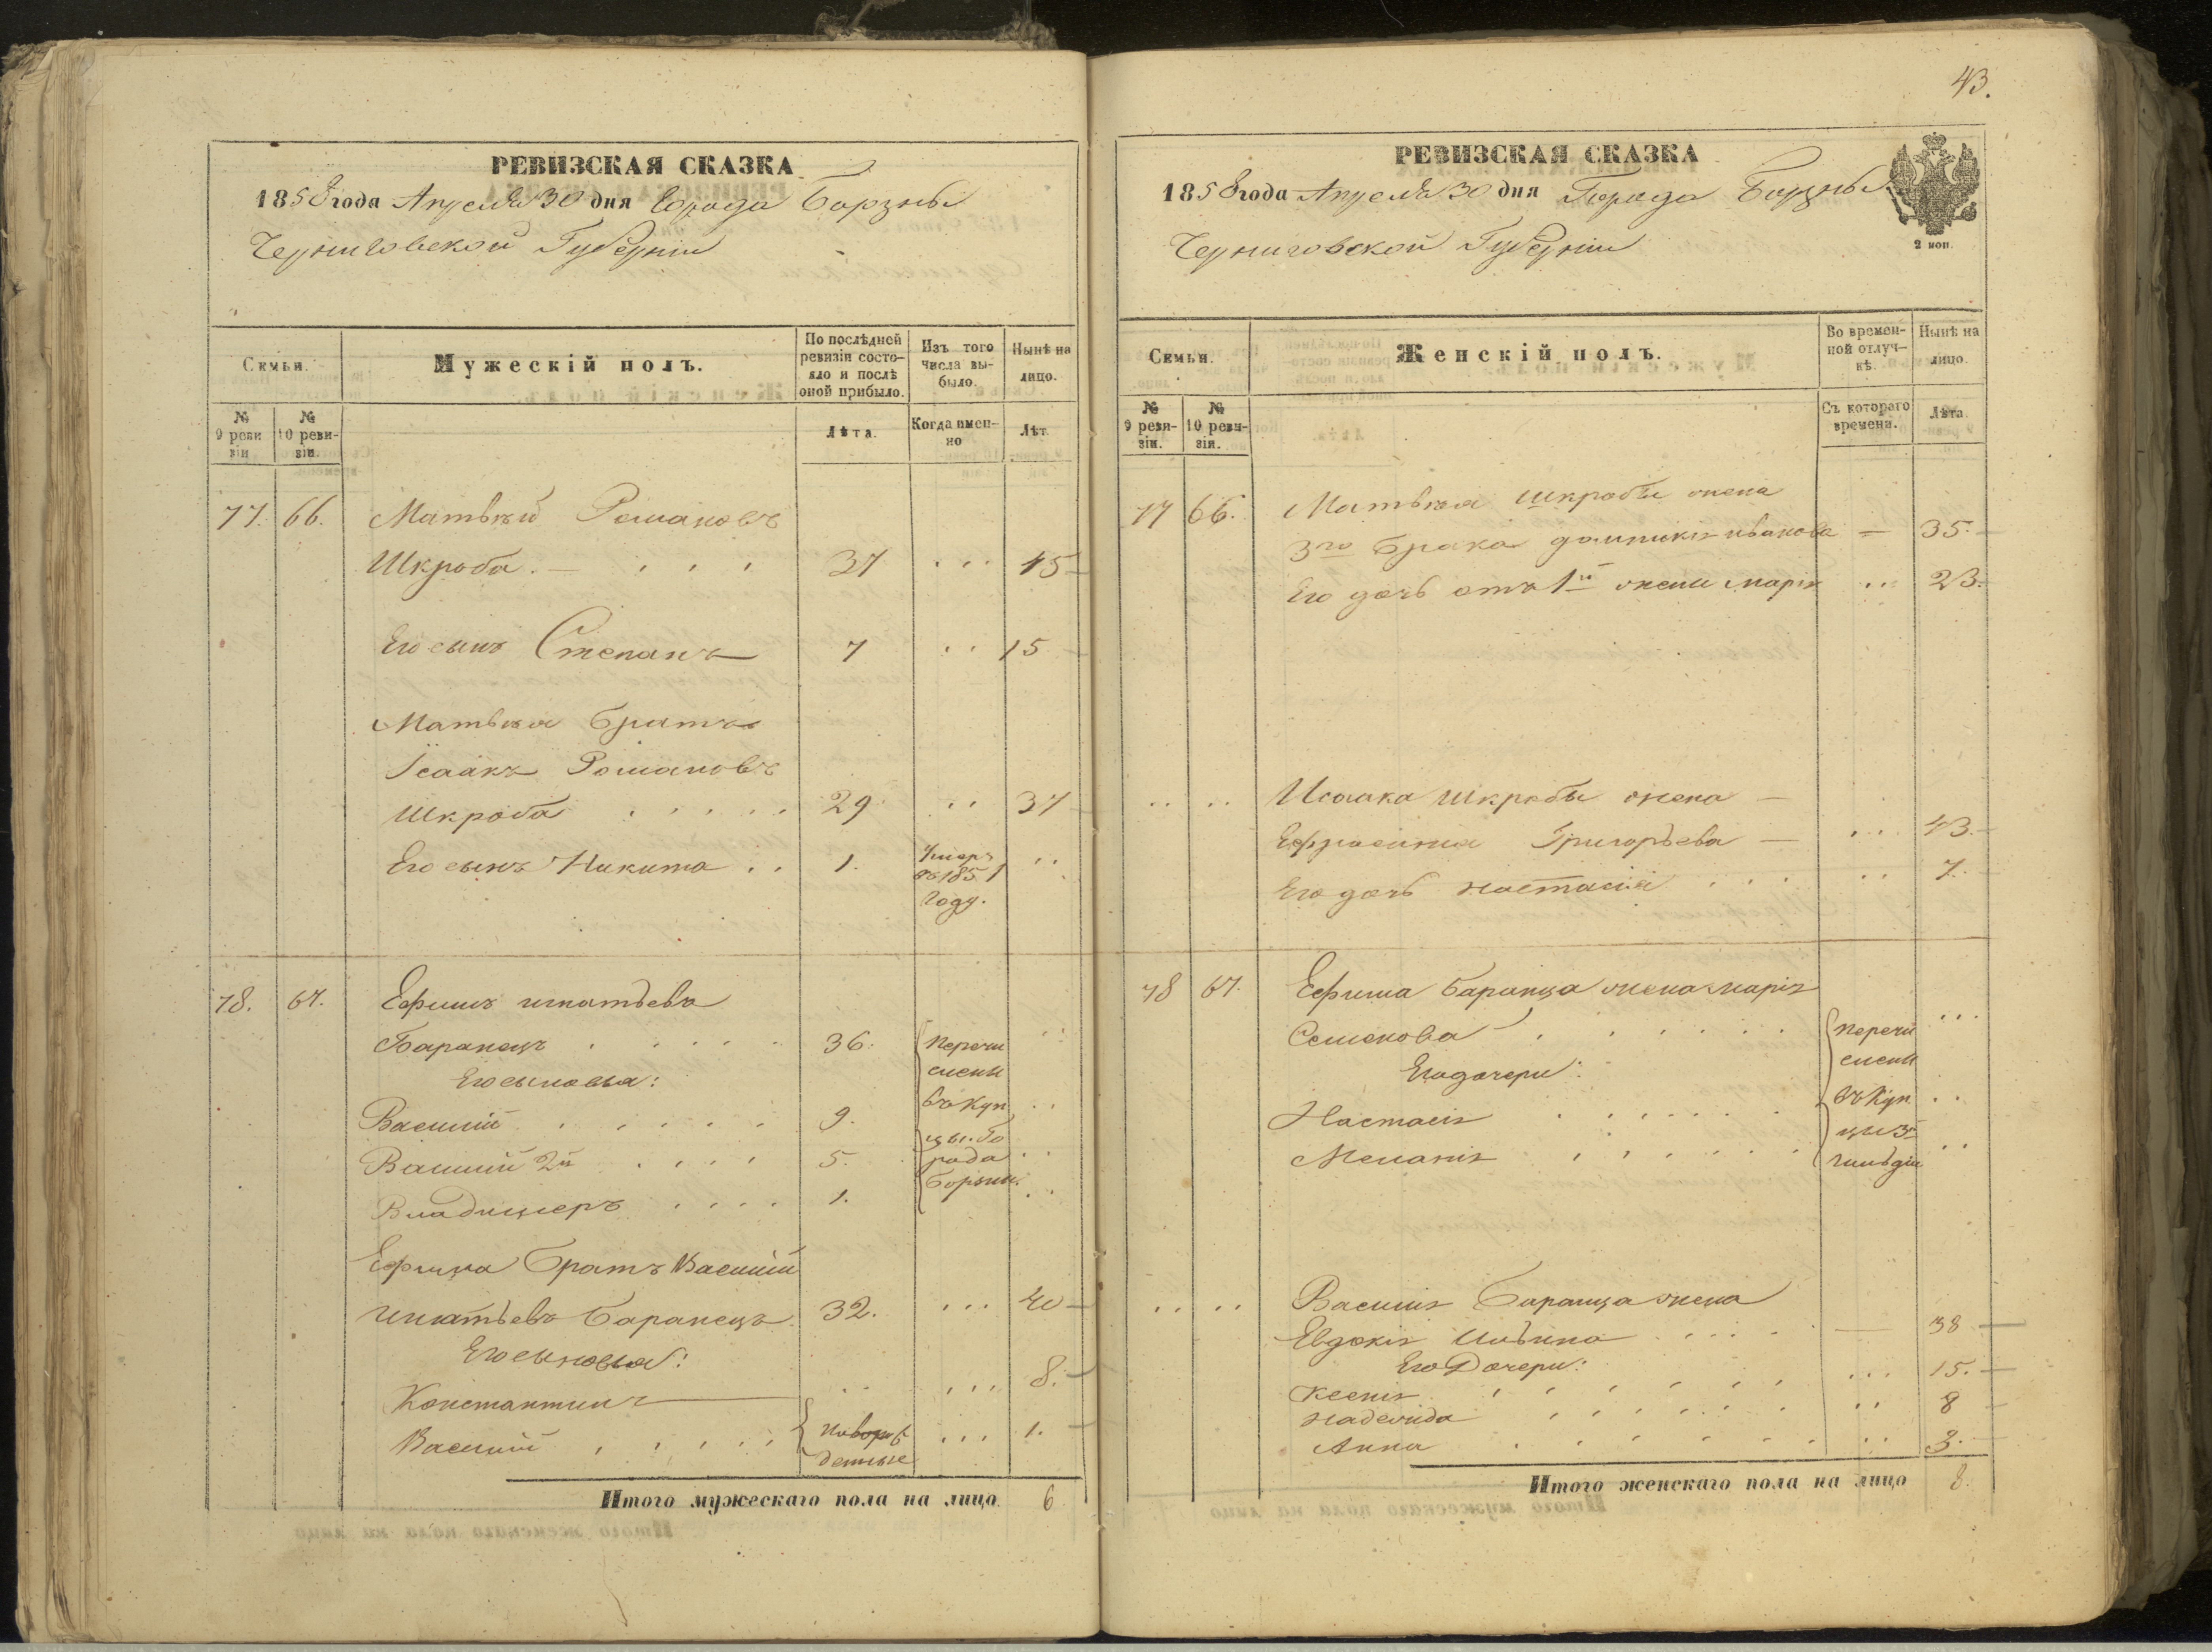 РЕВИЗСКАЯ СКАЗКА
1858 года Апреля 30 дня города Борзны
Черниговской Губерніи
Семьи.
Мужескій полъ.
По послѣдней ревизіи состояло и послѣ оной прибыло.
Изъ того числа выбыло.
Нынѣ на лицо.
№ 9 ревизіи
№ 10 ревизіи.
Лѣта.
Когда именно
Лѣт.
77. 66. Матвѣй Романовъ
Шкроба. 37 45
Его сынъ Степанъ 7 15
Матвѣя братъ
Ісаакъ Романовъ
Шкроба 29 37
Его сынъ Никита 1. Умеръ въ 1851 году.
78. 67. Ефимъ игнатьевъ
Баранецъ 36. перечи
Его сыновья: слены
въ Куп
Василій 9. цы. Го
Василий 2й 5. рода
Владимеръ 1. Борзны.
Ефима братъ Василій
игнатьевъ Баранецъ 32. 40
Его сыновья:
Константинъ 8.
Василий новорож 1.
денные
Итого мужескаго пола на лицо 6
43.
РЕВИЗСКАЯ СКАЗКА
1858 года Апреля 30 дня Города Борзны
Черниговской Губерніи
2 коп.
Семьи.
Женскій полъ.
Во временной отлучкѣ.
Нынѣ на лицо.
№ 9 ревизіи.
№ 10 ревизіи.
Съ котораго времени.
Лѣта.
77 66. Матвѣя Шкробы жена
3го брака домникія иванова 35.
Его дочь отъ 1й жены марія 23.
Исаака Шкробы жена
Ефросинія Григорьева 43.
Его дочь настасія 7.
78 67. Ефима Баранца жена марія
Семенова перечи
Его дочери: слены
въ Куп
Настасія цы 3й
Меланія гильдіи
Василія Баранца жена
Евдокія 38
Его Дочери:
Ксенія 15.
надежда 8
Анна 3.
Итого женскаго пола на лицо 8.